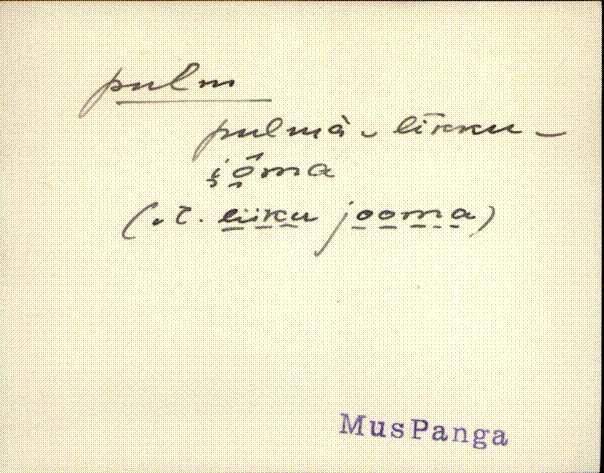 pulm
pulmà-līkku-
jọ̄ma
(vt. liiku jooma)
MusPanga